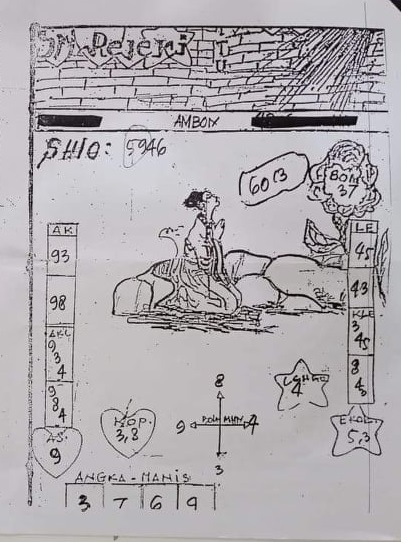 SM. Rejeki
ITU
AMBON
SHIO: 5946
60 13
BOM
37
AK
93
98
AKL
9
3
4
9
8
4
AS
9
LE
45
43
KLE
3
45
8
43
KOP.
3,8
8
9
4
3
4
EKOR
5,3
ANGKA-MANIS
3 7 6 9